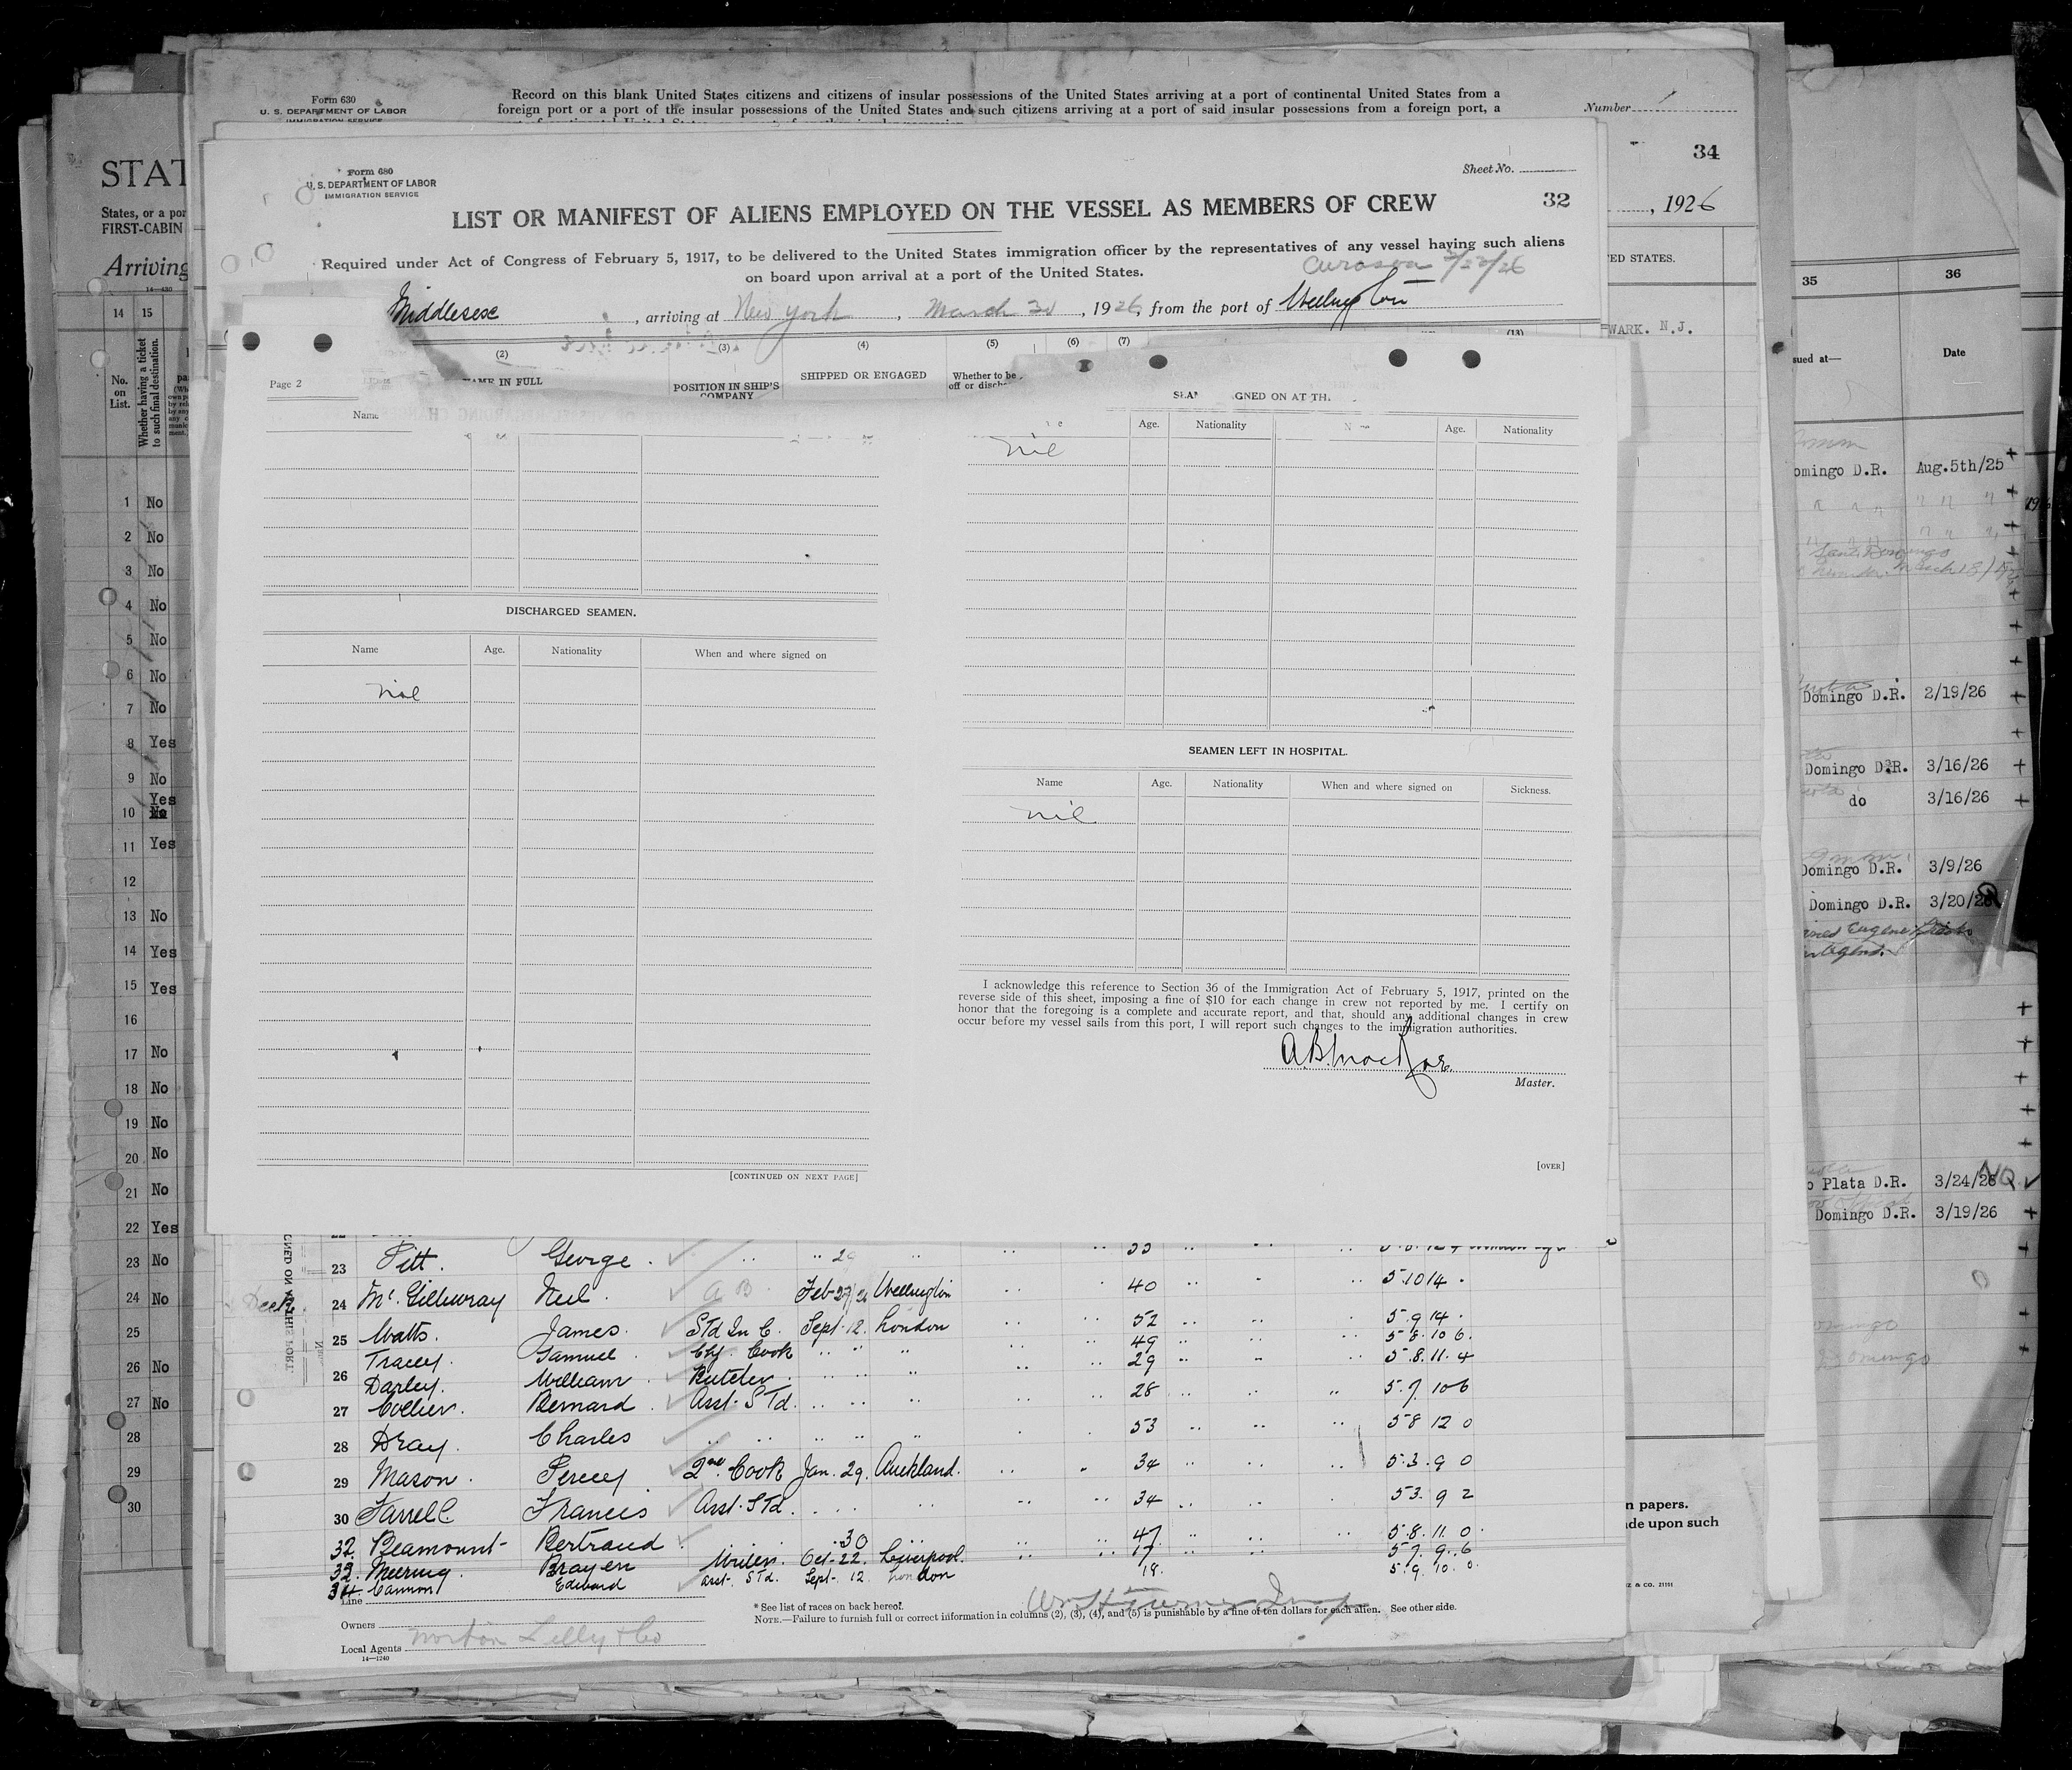 Form 630
U. S. DEPARTMENT OF LABOR
IMMIGRATION SERVICE
Record on this blank United States citizens and citizens of insular possessions of the United States arriving at a port of continental United States from a
foreign port or a port of the insular possessions of the United States and such citizens arriving at a port of said insular possessions from a foreign port, a
Number 1
34
, 1926
STAT
States, or a por
FIRST-CABIN
Arriving
14—430
14 15
No. on List.
Whether having a ticket to such final destination.
1 No
2 No
3 No
4 No
5 No
6 No
7 No
8 Yes
9 No
Yes
10 No
11 Yes
12
13 No
14 Yes
15 Yes
16
17 No
18 No
19 No
20 No
21 No
22 Yes
23 No
24 No
25
26 No
27 No
28
29
30
Form 680
U. S. DEPARTMENT OF LABOR
IMMIGRATION SERVICE
Sheet No.
32
LIST OR MANIFEST OF ALIENS EMPLOYED ON THE VESSEL AS MEMBERS OF CREW
Required under Act of Congress of February 5, 1917, to be delivered to the United States immigration officer by the representatives of any vessel having such aliens
on board upon arrival at a port of the United States.
Middlesex, arriving at New York, March 30, 1926, from the port of Wellington
(2) (3) (4) (5) (6) (7) (13)
NAME IN FULL
POSITION IN SHIP'S COMPANY
SHIPPED OR ENGAGED
Whether to be
Page 2
Name
DISCHARGED SEAMEN.
Name Age. Nationality When and where signed on
nil
[CONTINUED ON NEXT PAGE]
GNED ON AT TH
Age. Nationality Age. Nationality
nil
SEAMEN LEFT IN HOSPITAL.
Name Age. Nationality When and where signed on Sickness.
nil
I acknowledge this reference to Section 36 of the Immigration Act of February 5, 1917, printed on the
reverse side of this sheet, imposing a fine of $10 for each change in crew not reported by me. I certify on
honor that the foregoing is a complete and accurate report, and that, should any additional changes in crew
occur before my vessel sails from this port, I will report such changes to the immigration authorities.
Master.
[OVER]
23 Pitt. George.
24 McGillivray Neil. A B. Feb-27/26 Wellington 40 5 10 14
25 Watts. James. Std In C. Sept. 12. London 52 5 9 14
Tracey. Samuel Chf. Cook 49 5 8 10 6
26 Darley. William Butcher 29 5 8 11 4
27 Collier. Bernard Asst. STd. 28 5 7 10 6
28 Dray. Charles 53 5 8 12 0
29 Mason. Percy 2nd Cook Jan. 29. Auckland. 34 5 3 9 0
30 Farrell Francis Asst. STd. 34 5 3 9 2
32. Beamount Bertrand 30 47 5 8 11 0
33. Meering. Brayen Writer. Oct-22. Liverpool. 17 5 7 9 6
34. Cannon Edward asst. STd. Sept. 12 London 18. 5 9 10 0
Line
Owners
Local Agents Norton Lilly & Co
14—1240
* See list of races on back hereof.
NOTE.—Failure to furnish full or correct information in columns (2), (3), (4), and (5) is punishable by a fine of ten dollars for each alien. See other side.
ED STATES.
WARK. N.J.
n papers.
de upon such
& CO. 21101
35 36
sued at— Date
omingo D.R. Aug.5th/25
Domingo D.R. 2/19/26
Domingo D.R. 3/16/26
do 3/16/26
Domingo D.R. 3/9/26
Domingo D.R. 3/20/26
o Plata D.R. 3/24/26 NQ
Domingo D.R. 3/19/26